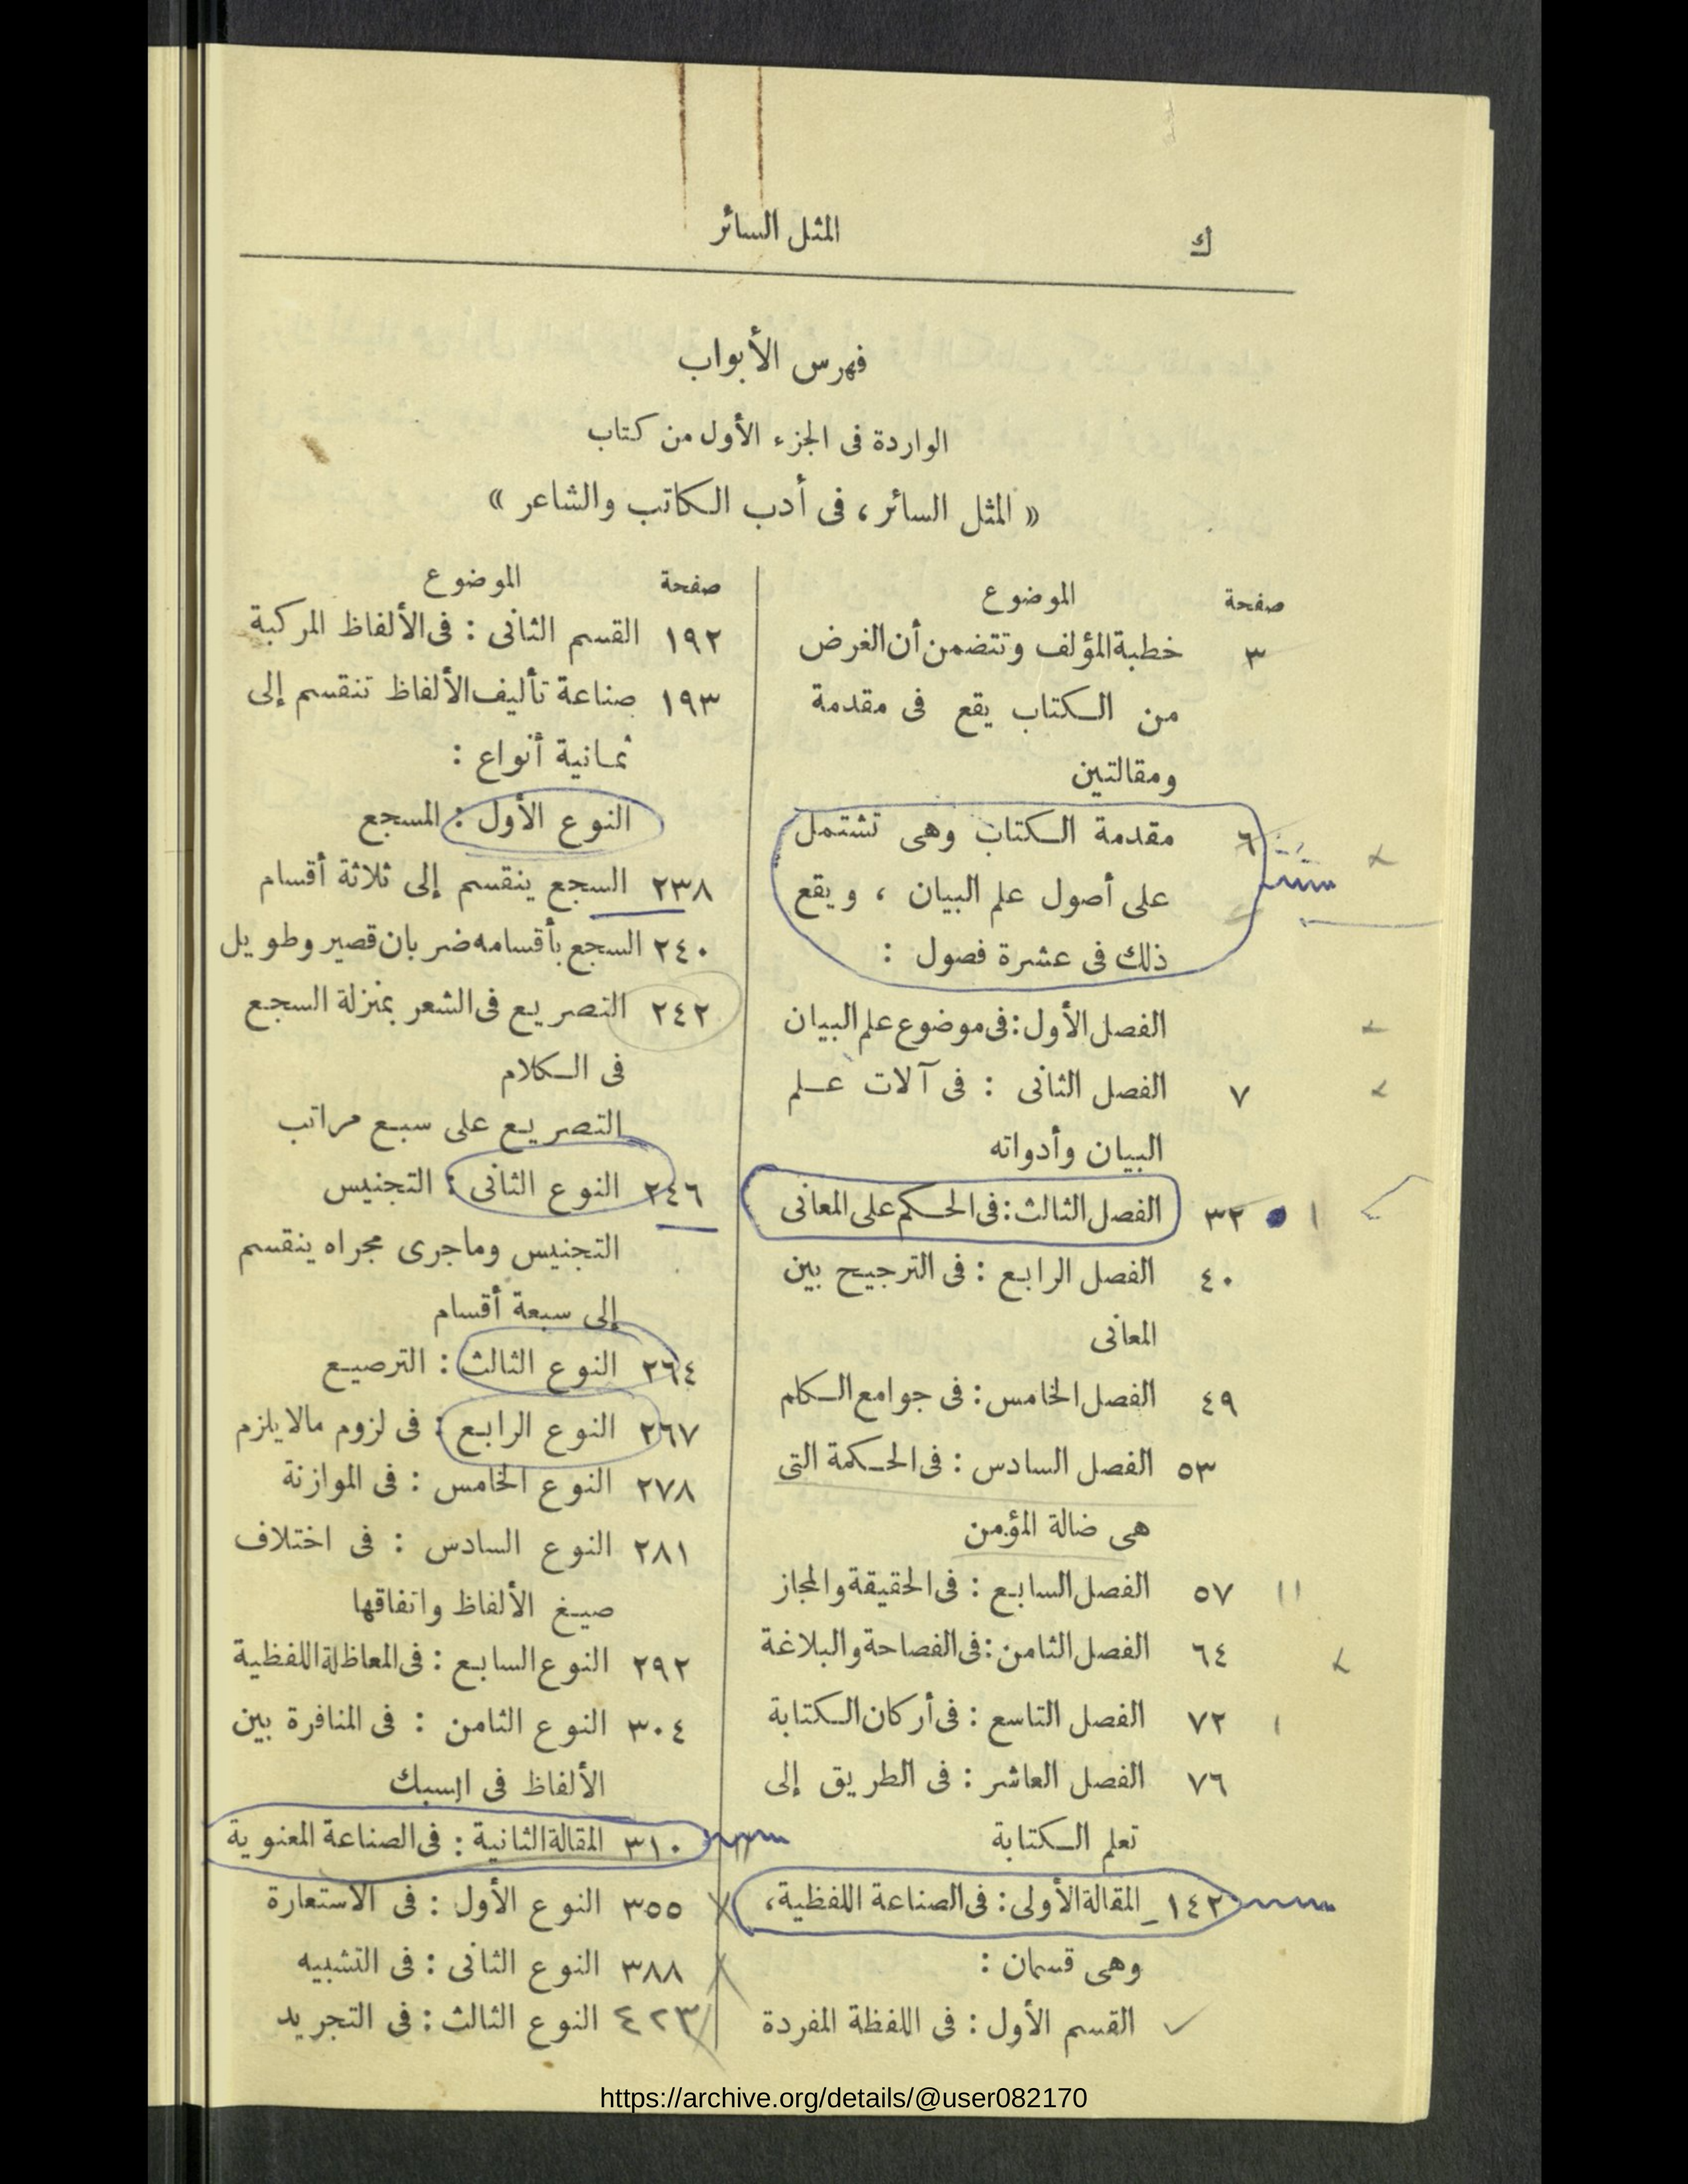 ك
المثل السائر
فهرس الأبواب
الواردة فى الجزء الأول من كتاب
« المثل السائر، فى أدب الكاتب والشاعر »
صفحة الموضوع
٣ خطبة المؤلف وتتضمن أن الغرض
من الكتاب يقع فى مقدمة
ومقالتين
٦ مقدمة الكتاب وهى تشتمل
على أصول علم البيان ، ويقع
ذلك فى عشرة فصول :
الفصل الأول : فى موضوع علم البيان
٧ الفصل الثانى : فى آلات علم
البيان وأدواته
٣٢ الفصل الثالث : فى الحكم على المعانى
٤٠ الفصل الرابع : فى الترجيح بين
المعانى
٤٩ الفصل الخامس : فى جوامع الكلم
٥٣ الفصل السادس : فى الحكمة التى
هى ضالة المؤمن
٥٧ الفصل السابع : فى الحقيقة والمجاز
٦٤ الفصل الثامن : فى الفصاحة والبلاغة
٧٢ الفصل التاسع : فى أركان الكتابة
٧٦ الفصل العاشر : فى الطريق إلى
تعلم الكتابة
١٤٢ المقالة الأولى : فى الصناعة اللفظية،
وهى قسمان :
القسم الأول : فى اللفظة المفردة
صفحة الموضوع
١٩٢ القسم الثانى : فى الألفاظ المركبة
١٩٣ صناعة تأليف الألفاظ تنقسم إلى
ثمانية أنواع :
النوع الأول : المسجع
٢٣٨ السجع ينقسم إلى ثلاثة أقسام
٢٤٠ السجع بأقسامه ضربان قصير وطويل
٢٤٢ التصريع فى الشعر بمنزلة السجع
فى الكلام
التصريع على سبع مراتب
٢٤٦ النوع الثانى : التجنيس
التجنيس وما جرى مجراه ينقسم
إلى سبعة أقسام
٢٦٤ النوع الثالث : الترصيع
٢٦٧ النوع الرابع : فى لزوم مالا يلزم
٢٧٨ النوع الخامس : فى الموازنة
٢٨١ النوع السادس : فى اختلاف
صيغ الألفاظ واتفاقها
٢٩٢ النوع السابع : فى المعاظلة اللفظية
٣٠٤ النوع الثامن : فى المنافرة بين
الألفاظ فى السبك
٣١٠ المقالة الثانية : فى الصناعة المعنوية
٣٥٥ النوع الأول : فى الاستعارة
٣٨٨ النوع الثانى : فى التشبيه
٤٢٣ النوع الثالث : فى التجريد
https://archive.org/details/@user082170